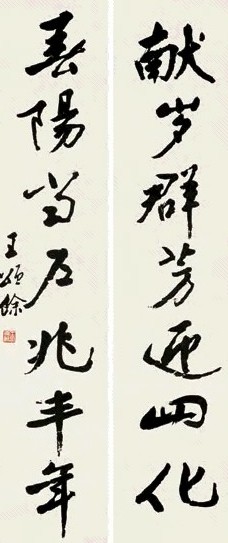 献岁群芳迎四化
春陽当兆丰年
王颂餘